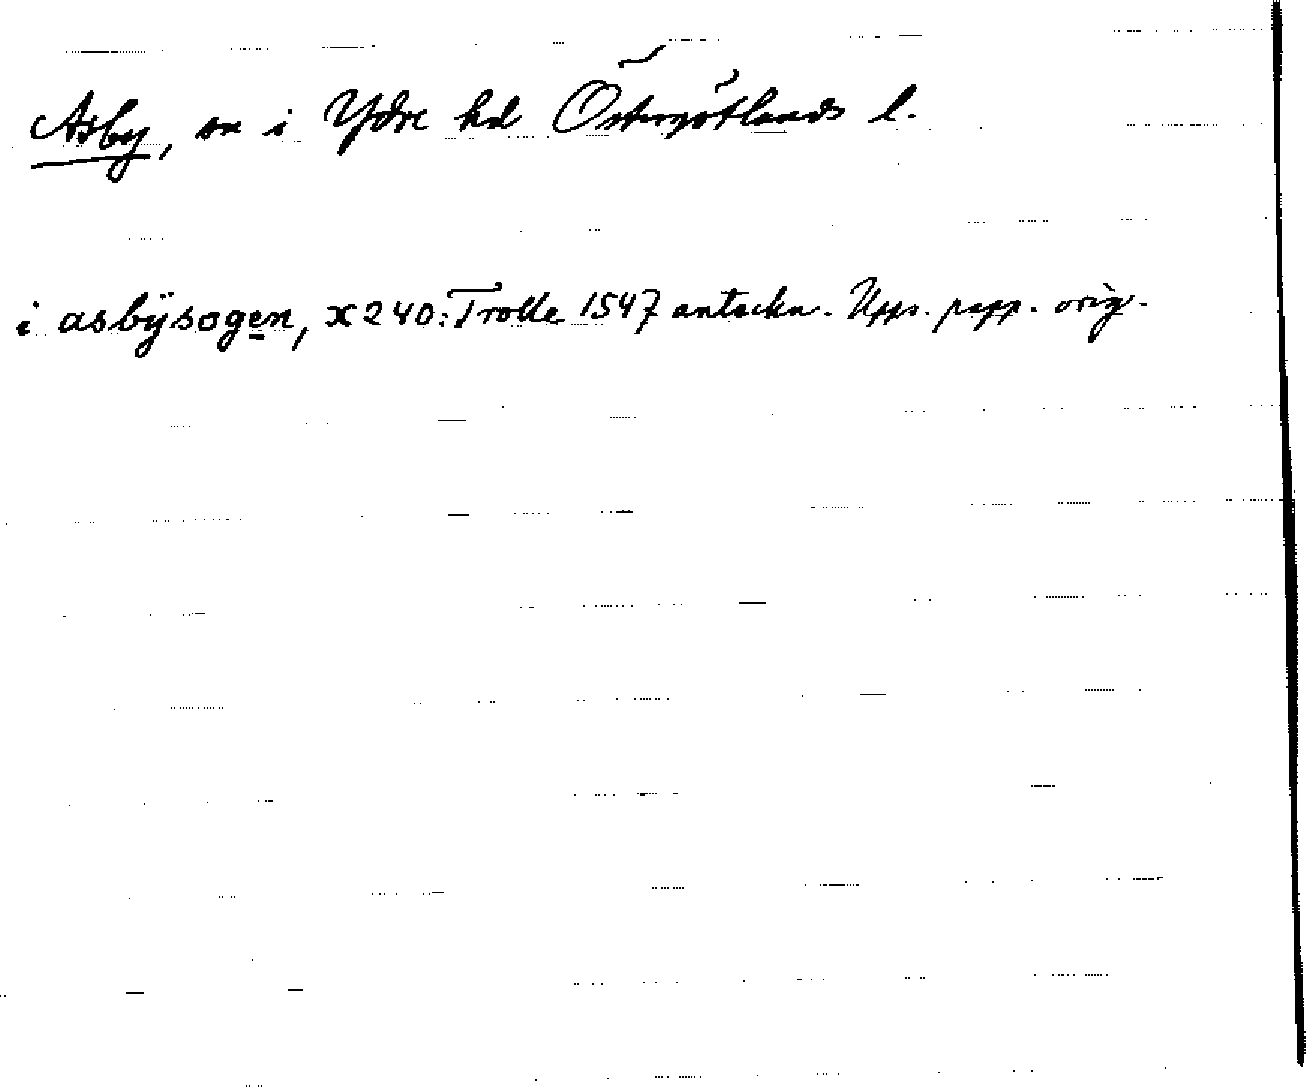 Asby, sn i Ydre hd Östergötlands l.
i asbÿsogen, x 240: Trolle 1547 anteckn. Upps. papp. orig.